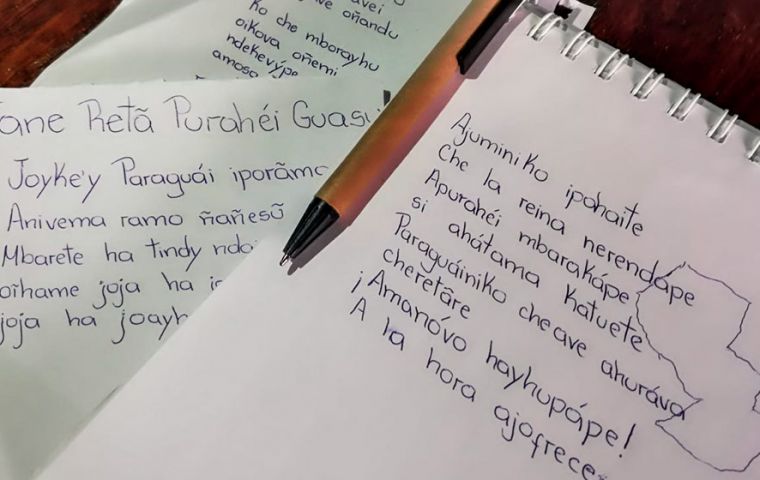 avei
ve oñandu
Ko che mborayhu
oikova oñemi
ndekevýpe
amoso
ane Retã Purahéi Guasu!
Joyke'y Paraguái iporãma
Anivema ramo ñañesũ
Mbarete ha tindy
oĩhame joja ha
joja ha joayh
Ajuminiko ipohaite
Che la reina nerendápe
Apurahéi mbarakápe
si ahátama katuete
Paraguáiniko cheave ahuráva
cheretãre
¡Amanóvo hayhupápe!
A la hora ajofrece